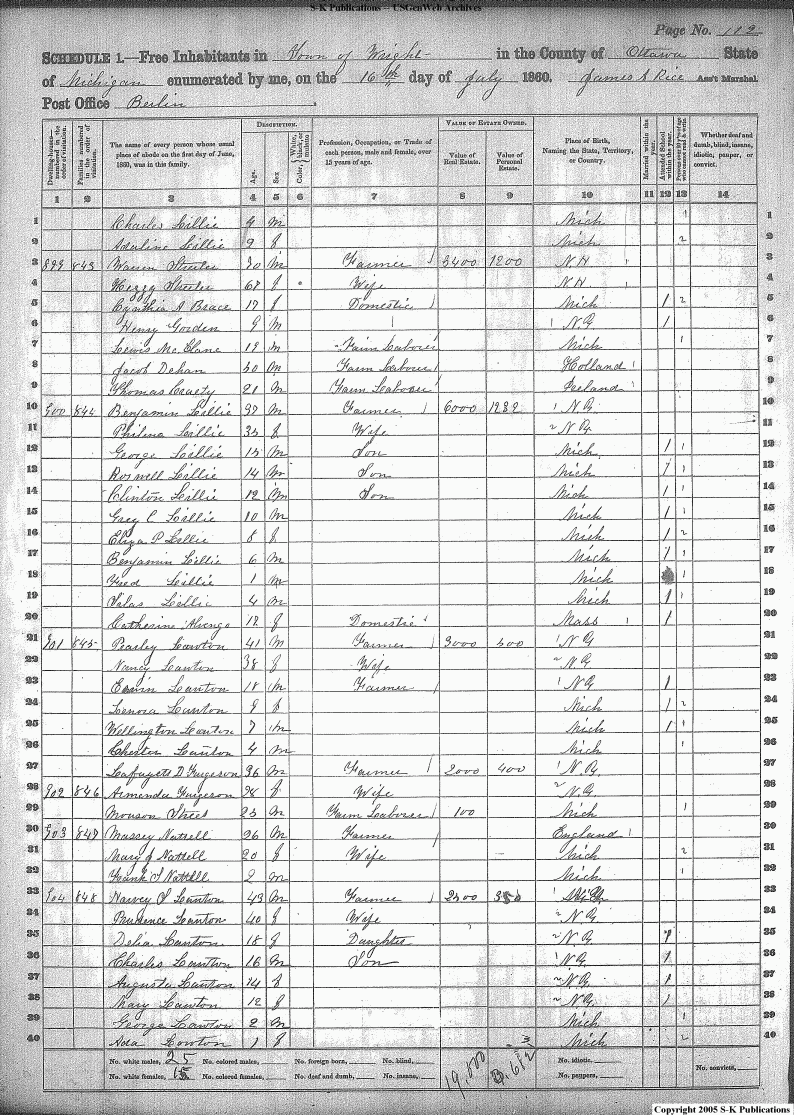 S-K Publications -- USGenWeb Archives
Page No. 112
SCHEDULE 1.—Free Inhabitants in Town of Wright in the County of Ottawa State
of Michigan enumerated by me, on the 16th day of July 1860. James S Rice Ass't Marshal
Post Office Berlin
Dwelling-houses—numbered in the order of visitation.
Families numbered in the order of visitation.
The name of every person whose usual place of abode on the first day of June, 1860, was in this family.
DESCRIPTION.
Age.
Sex.
Color, White, black, or mulatto
Profession, Occupation, or Trade of each person, male and female, over 15 years of age.
VALUE OF ESTATE OWNED.
Value of Real Estate.
Value of Personal Estate.
Place of Birth, Naming the State, Territory, or Country.
Married within the year.
Attended School within the year.
Whether deaf and dumb, blind, insane, idiotic, pauper, or convict.
1 2 3 4 5 6 7 8 9 10 11 12 13 14
1 Charles Lillie 4 m Mich 1 1
2 Adaline Lillie 9 f Mich 2 2
3 899 843 Warren Streeter 70 m Farmer 3400 1200 N.H 3
4 Streeter 68 f Wife N.H 4
5 Cynthia A Brace 17 f Domestic Mich 1 2 5
6 Henry Gorden 9 m 1 N.Y. 1 6
7 Lewis Mc Clane 19 m Farm Laborer Mich 1 7
8 Jacob Dehan 30 m Farm Laborer Holland 8
9 Thomas 21 m Farm Laborer Ireland 9
10 900 844 Benjamin Lillie 37 m Farmer 6000 1282 1 N.Y. 10
11 Philena Lillie 35 f Wife 2 N.Y. 11
12 George Lillie 15 m Son Mich 1 1 12
13 Roswell Lillie 14 m Son Mich 1 1 13
14 Clinton Lillie 12 m Son Mich 1 1 14
15 Grey C Lillie 10 m Mich 1 1 15
16 Eliza P Lillie 8 f Mich 1 2 16
17 Benjamin Lillie 6 m Mich 1 1 17
18 Fred Lillie 1 m Mich 1 18
19 Silas Lillie 4 m Mich 1 1 19
20 Catherine 18 f Domestic Mass 1 20
21 901 845 Pearley Lawton 41 m Farmer 3000 500 1 N.Y. 21
22 Nancy Lawton 38 f Wife 2 N.Y. 22
23 Edwin Lawton 18 m Farmer 1 N.Y. 1 23
24 Lenora Lawton 9 f Mich 1 2 24
25 Wellington Lawton 7 m Mich 1 1 25
26 Chester Lawton 4 m Mich 1 26
27 Lafayett D Furgerson 36 m Farmer 2000 400 1 N.Y. 27
28 902 846 Armenda Furgerson 28 f Wife 2 N.Y. 28
29 Monson Street 23 m Farm Laborer 100 Mich 1 29
30 903 847 Massey Nattell 26 m Farmer England 30
31 Mary J Nattell 20 f Wife Mich 2 31
32 Frank Nattell 2 m Mich 1 32
33 904 848 Harvey Lawton 43 m Farmer 2500 350 33
34 Prudence Lawton 40 f Wife 2 N.Y. 34
35 Delia Lawton 18 f Daughter 2 N.Y. 1 35
36 Charles Lawton 16 m Son 1 N.Y. 1 36
37 Augusta Lawton 14 f 2 N.Y. 1 37
38 Mary Lawton 12 f 2 N.Y. 1 38
39 George Lawton 2 m Mich 1 39
40 Ada Lowton 1 f Mich 2 40
No. white males, 25 No. colored males, No. foreign born, No. blind, No. idiotic,
No. white females, 15 No. colored females, No. deaf and dumb, No. insane, 19,000 3,612 No. paupers, No. convicts,
Copyright 2005 S-K Publications